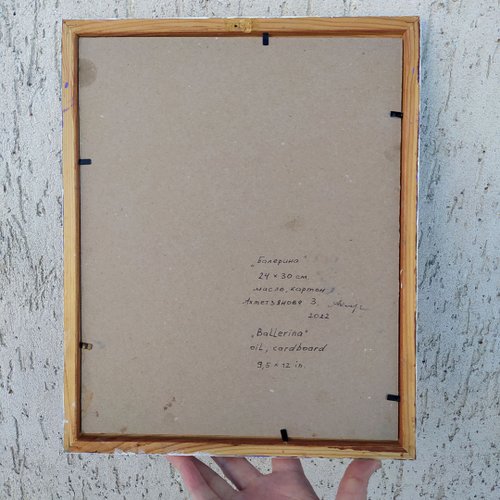 „Балерина"
24 × 30 см
масло, картон
Ахметзянова З.
2022
„Ballerina"
oil, cardboard
9,5 × 12 in.